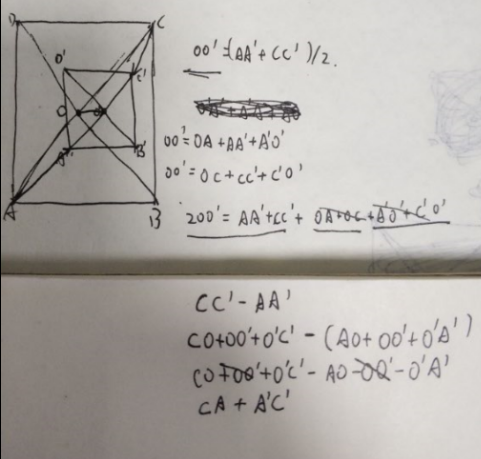 D
C
D'
C'
O
O'
A'
B'
A
B
OO' = (AA' + CC')/2.
OO' = OA + AA' + A'O'
OO' = OC + CC' + C'O'
2OO' = AA' + CC' + OA + OC + A'O' + C'O'
CC' - AA'
CO + OO' + O'C' - (AO + OO' + O'A')
CO + OO' + O'C' - AO - OO' - O'A'
CA + A'C'